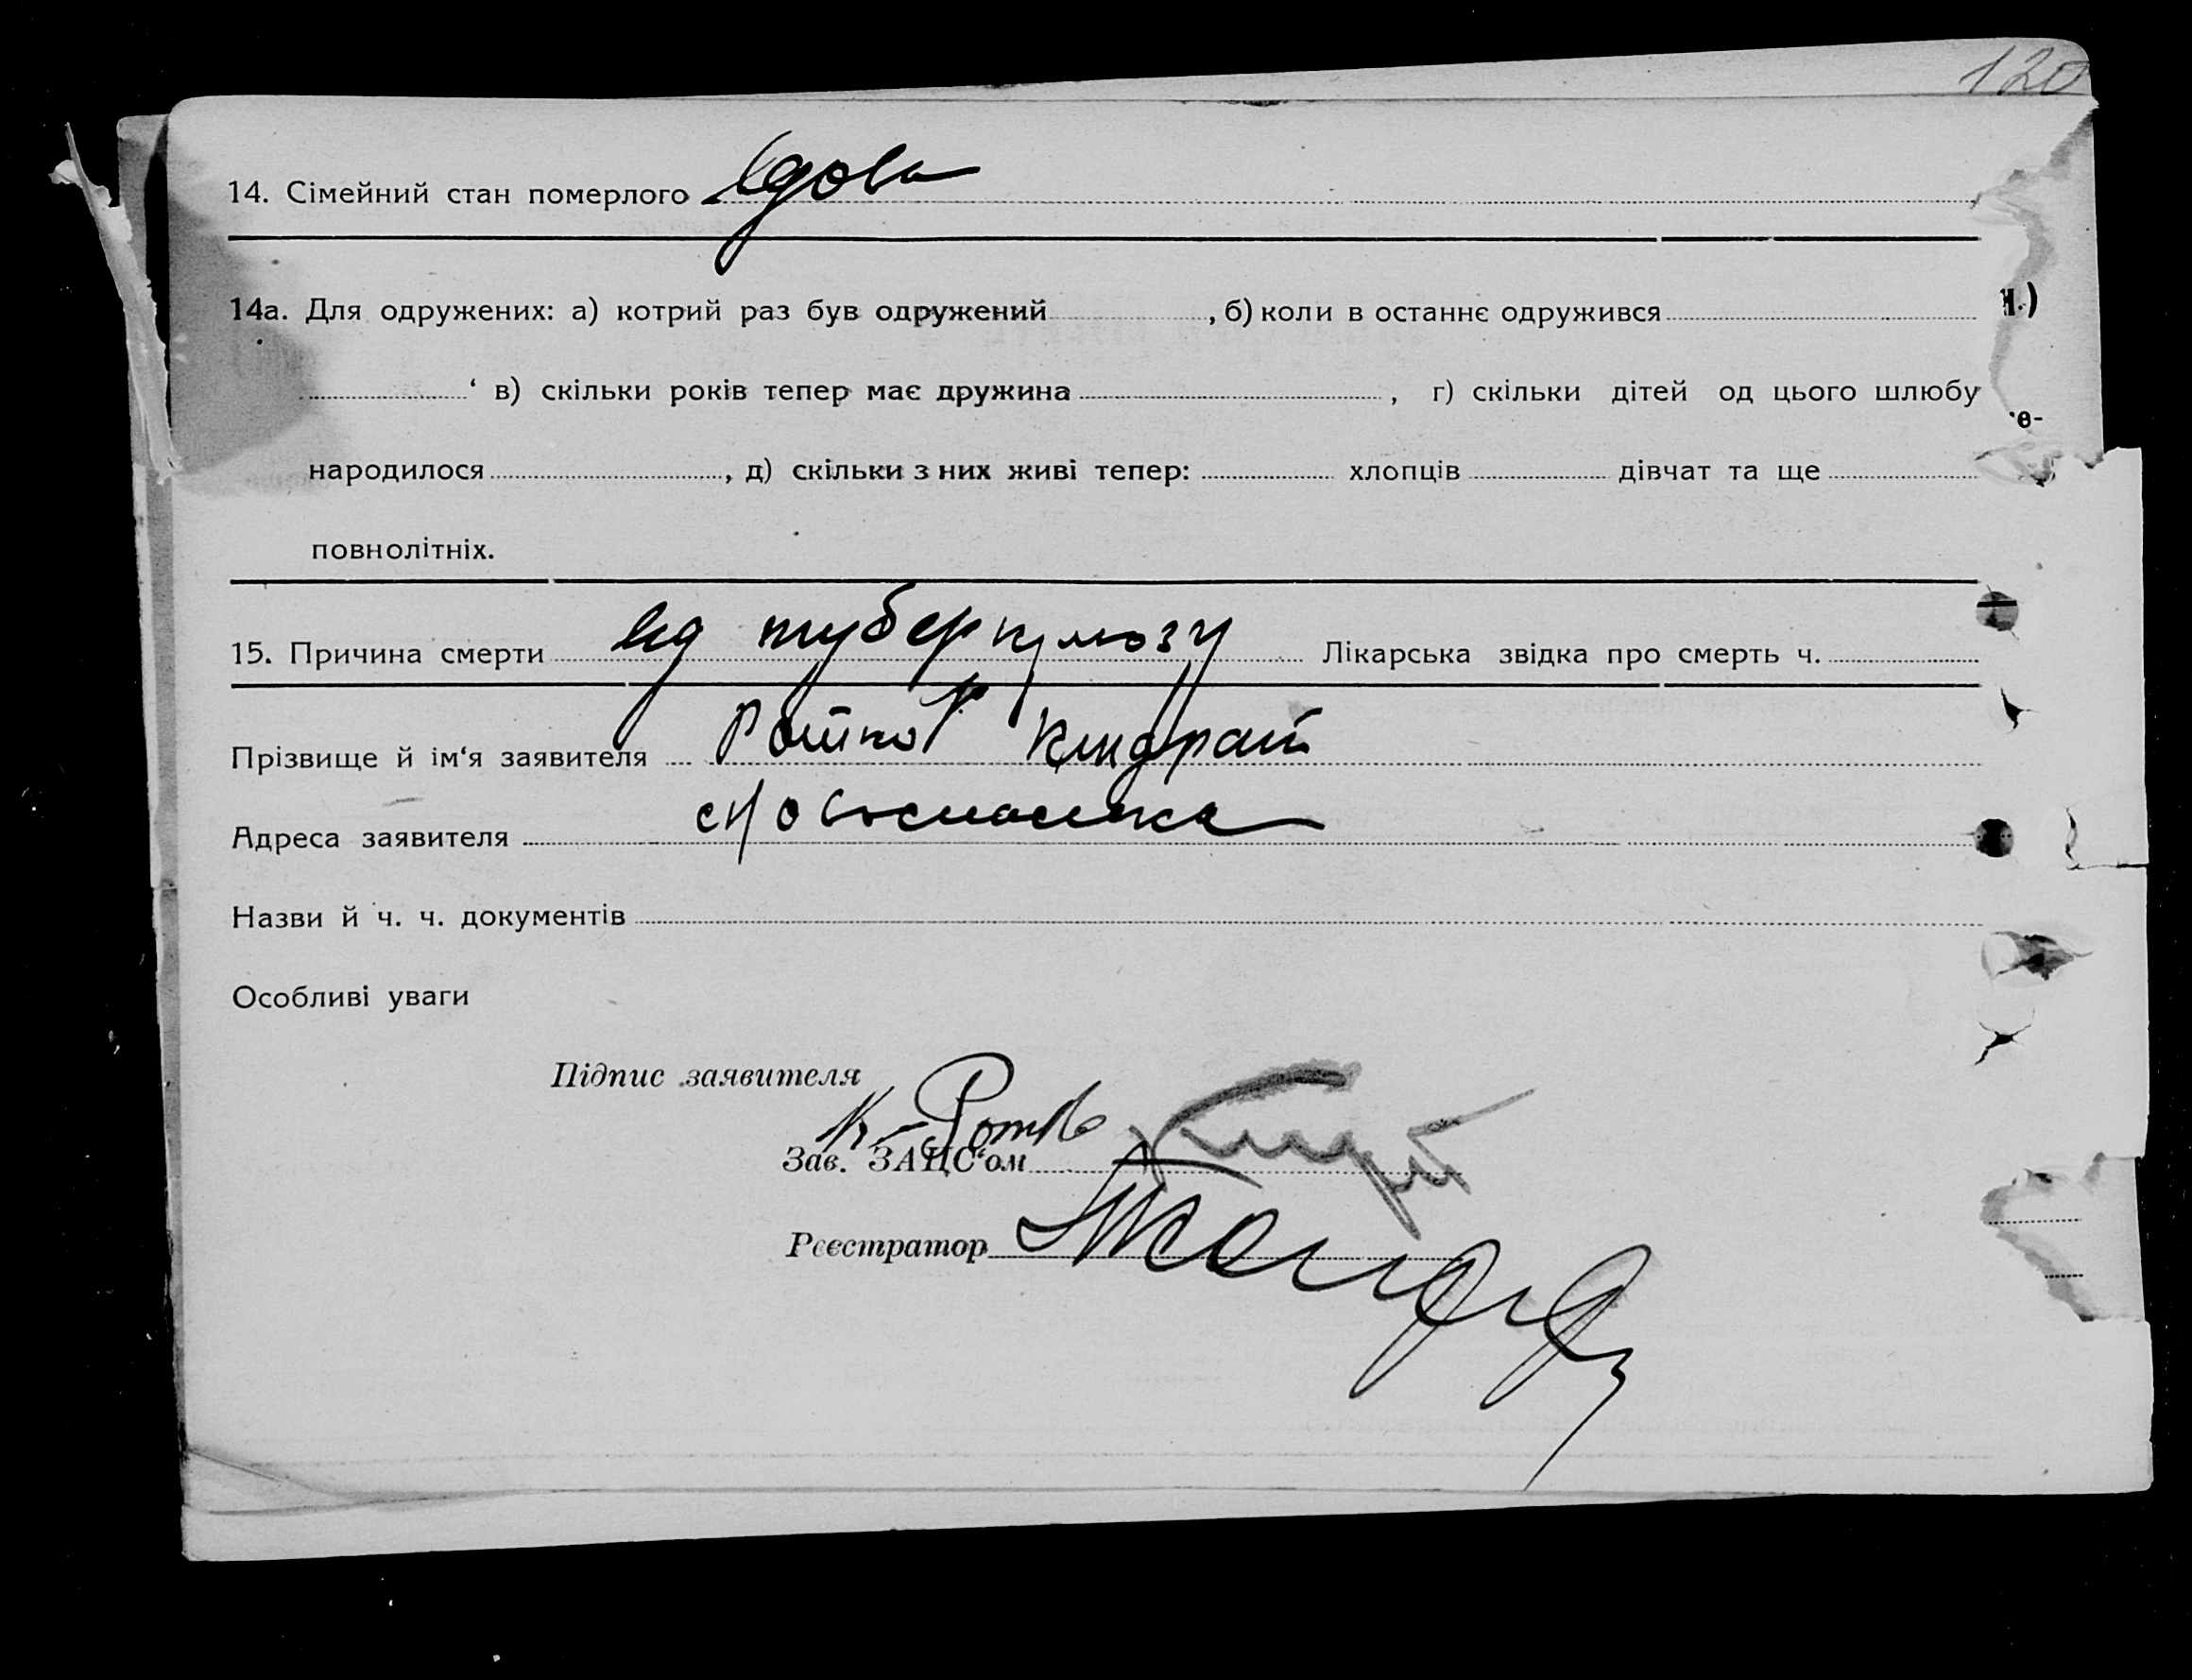 120
14. Сімейний стан померлого вдова
14а. Для одружених: а) котрий раз був одружений , б) коли в останнє одружився
‘ в) скільки років тепер має дружина , г) скільки дітей од цього шлюбу
народилося , д) скільки з них живі тепер: хлопців дівчат та ще
повнолітніх.
15. Причина смерти від туберкульозу Лікарська звідка про смерть ч.
Прізвище й ім‘я заявителя Кіндрат
Адреса заявителя
Назви й ч. ч. документів
Особливі уваги
Підпис заявителя
Зав. ЗАЦС‘ом
Реєстратор